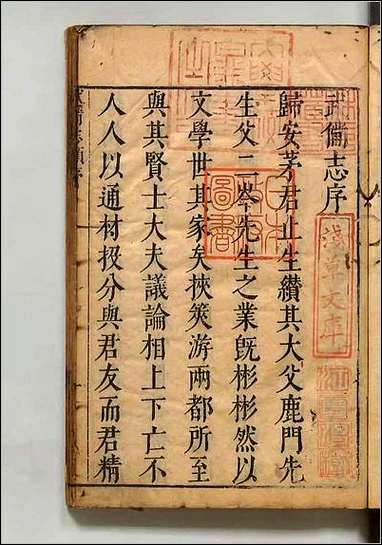 武備志序
歸安茅君止生纘其大父鹿門先
生父二岑先生之業既彬彬然以
文學世其家矣挾筴游兩都所至
與其賢士大夫議論相上下亡不
人人以通材投分與君友而君精
淺草文庫
日本
圖書